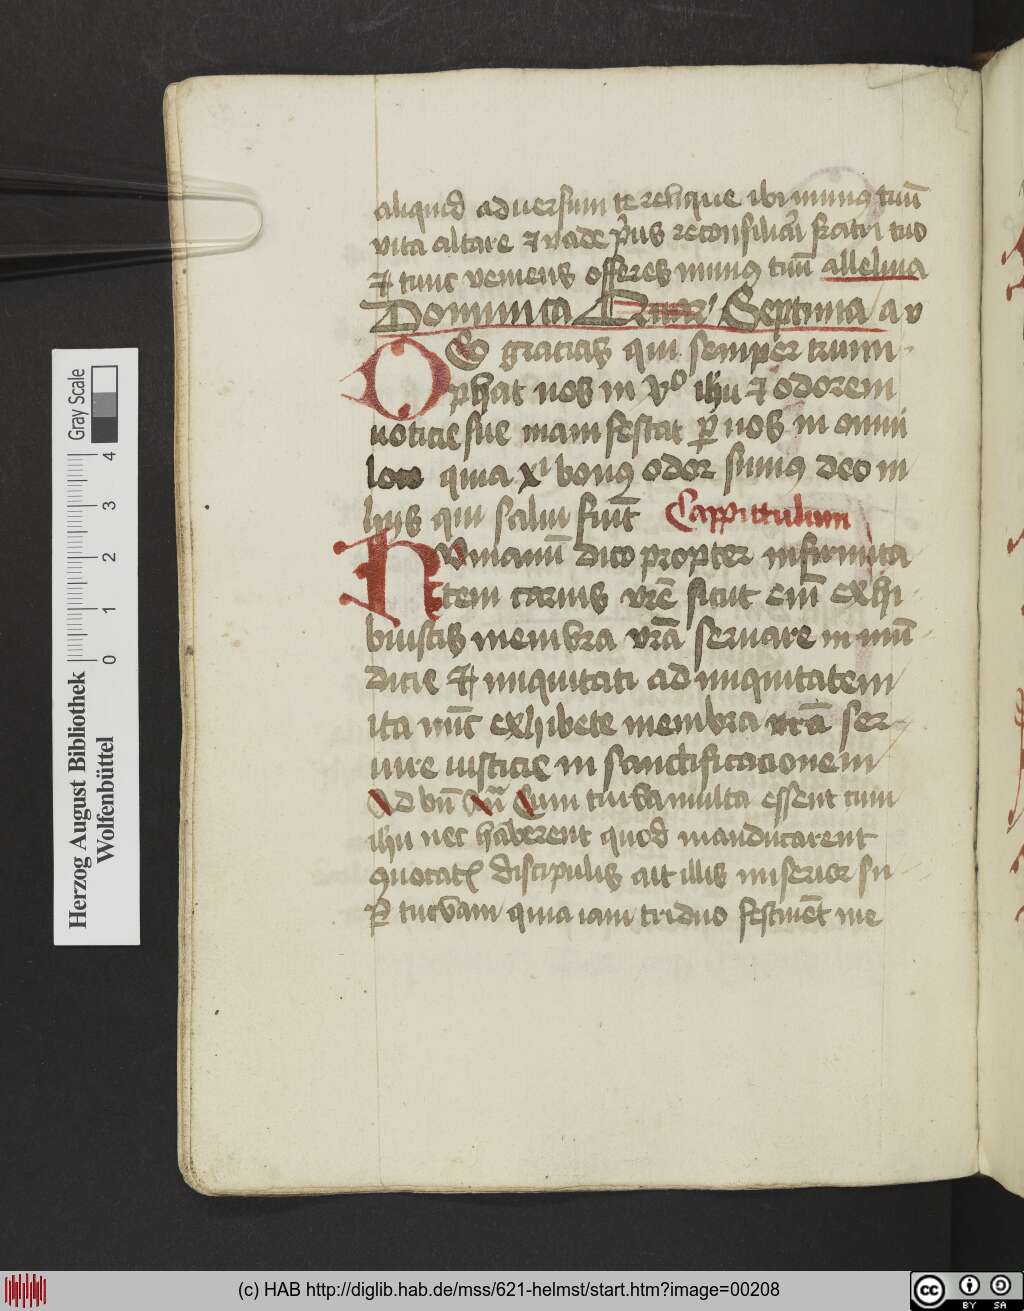 aliquid aduersum te relique ibi munus tuū
vita altare et vade p̄us reconsiliari fratri tuo
et tunc veniens offeres munus tuū alleluia
Dominica Septima a v
Deo gracias qui semper trium
phat nos in vᵒ ihu et odorem
noticie sue manifestat p̄ nos in omni
loco quia xⁱ bonus odor sumus deo in
hijs qui salui fiūt Cappittulum
Humanū dico propter infirmita
tem carnis vr̄e sicut em̄ exhi
buistis membra vr̄a seruare in mū
dicie et iniquitati ad iniquitatem
ita nūc exhibete membra vr̄a ser
uire iusticie in sanctificacionem
Ad bn̄ Cum turba multa essent cum
ihu nec haberent quod manducarent
9uocatꝭ discipulis ait illis miserior su
p̄ turbam quia iam triduo sustinēt me
Herzog August Bibliothek
Wolfenbüttel
Gray Scale
0 1 2 3 4
(c) HAB http://diglib.hab.de/mss/621-helmst/start.htm?image=00208
cc BY SA